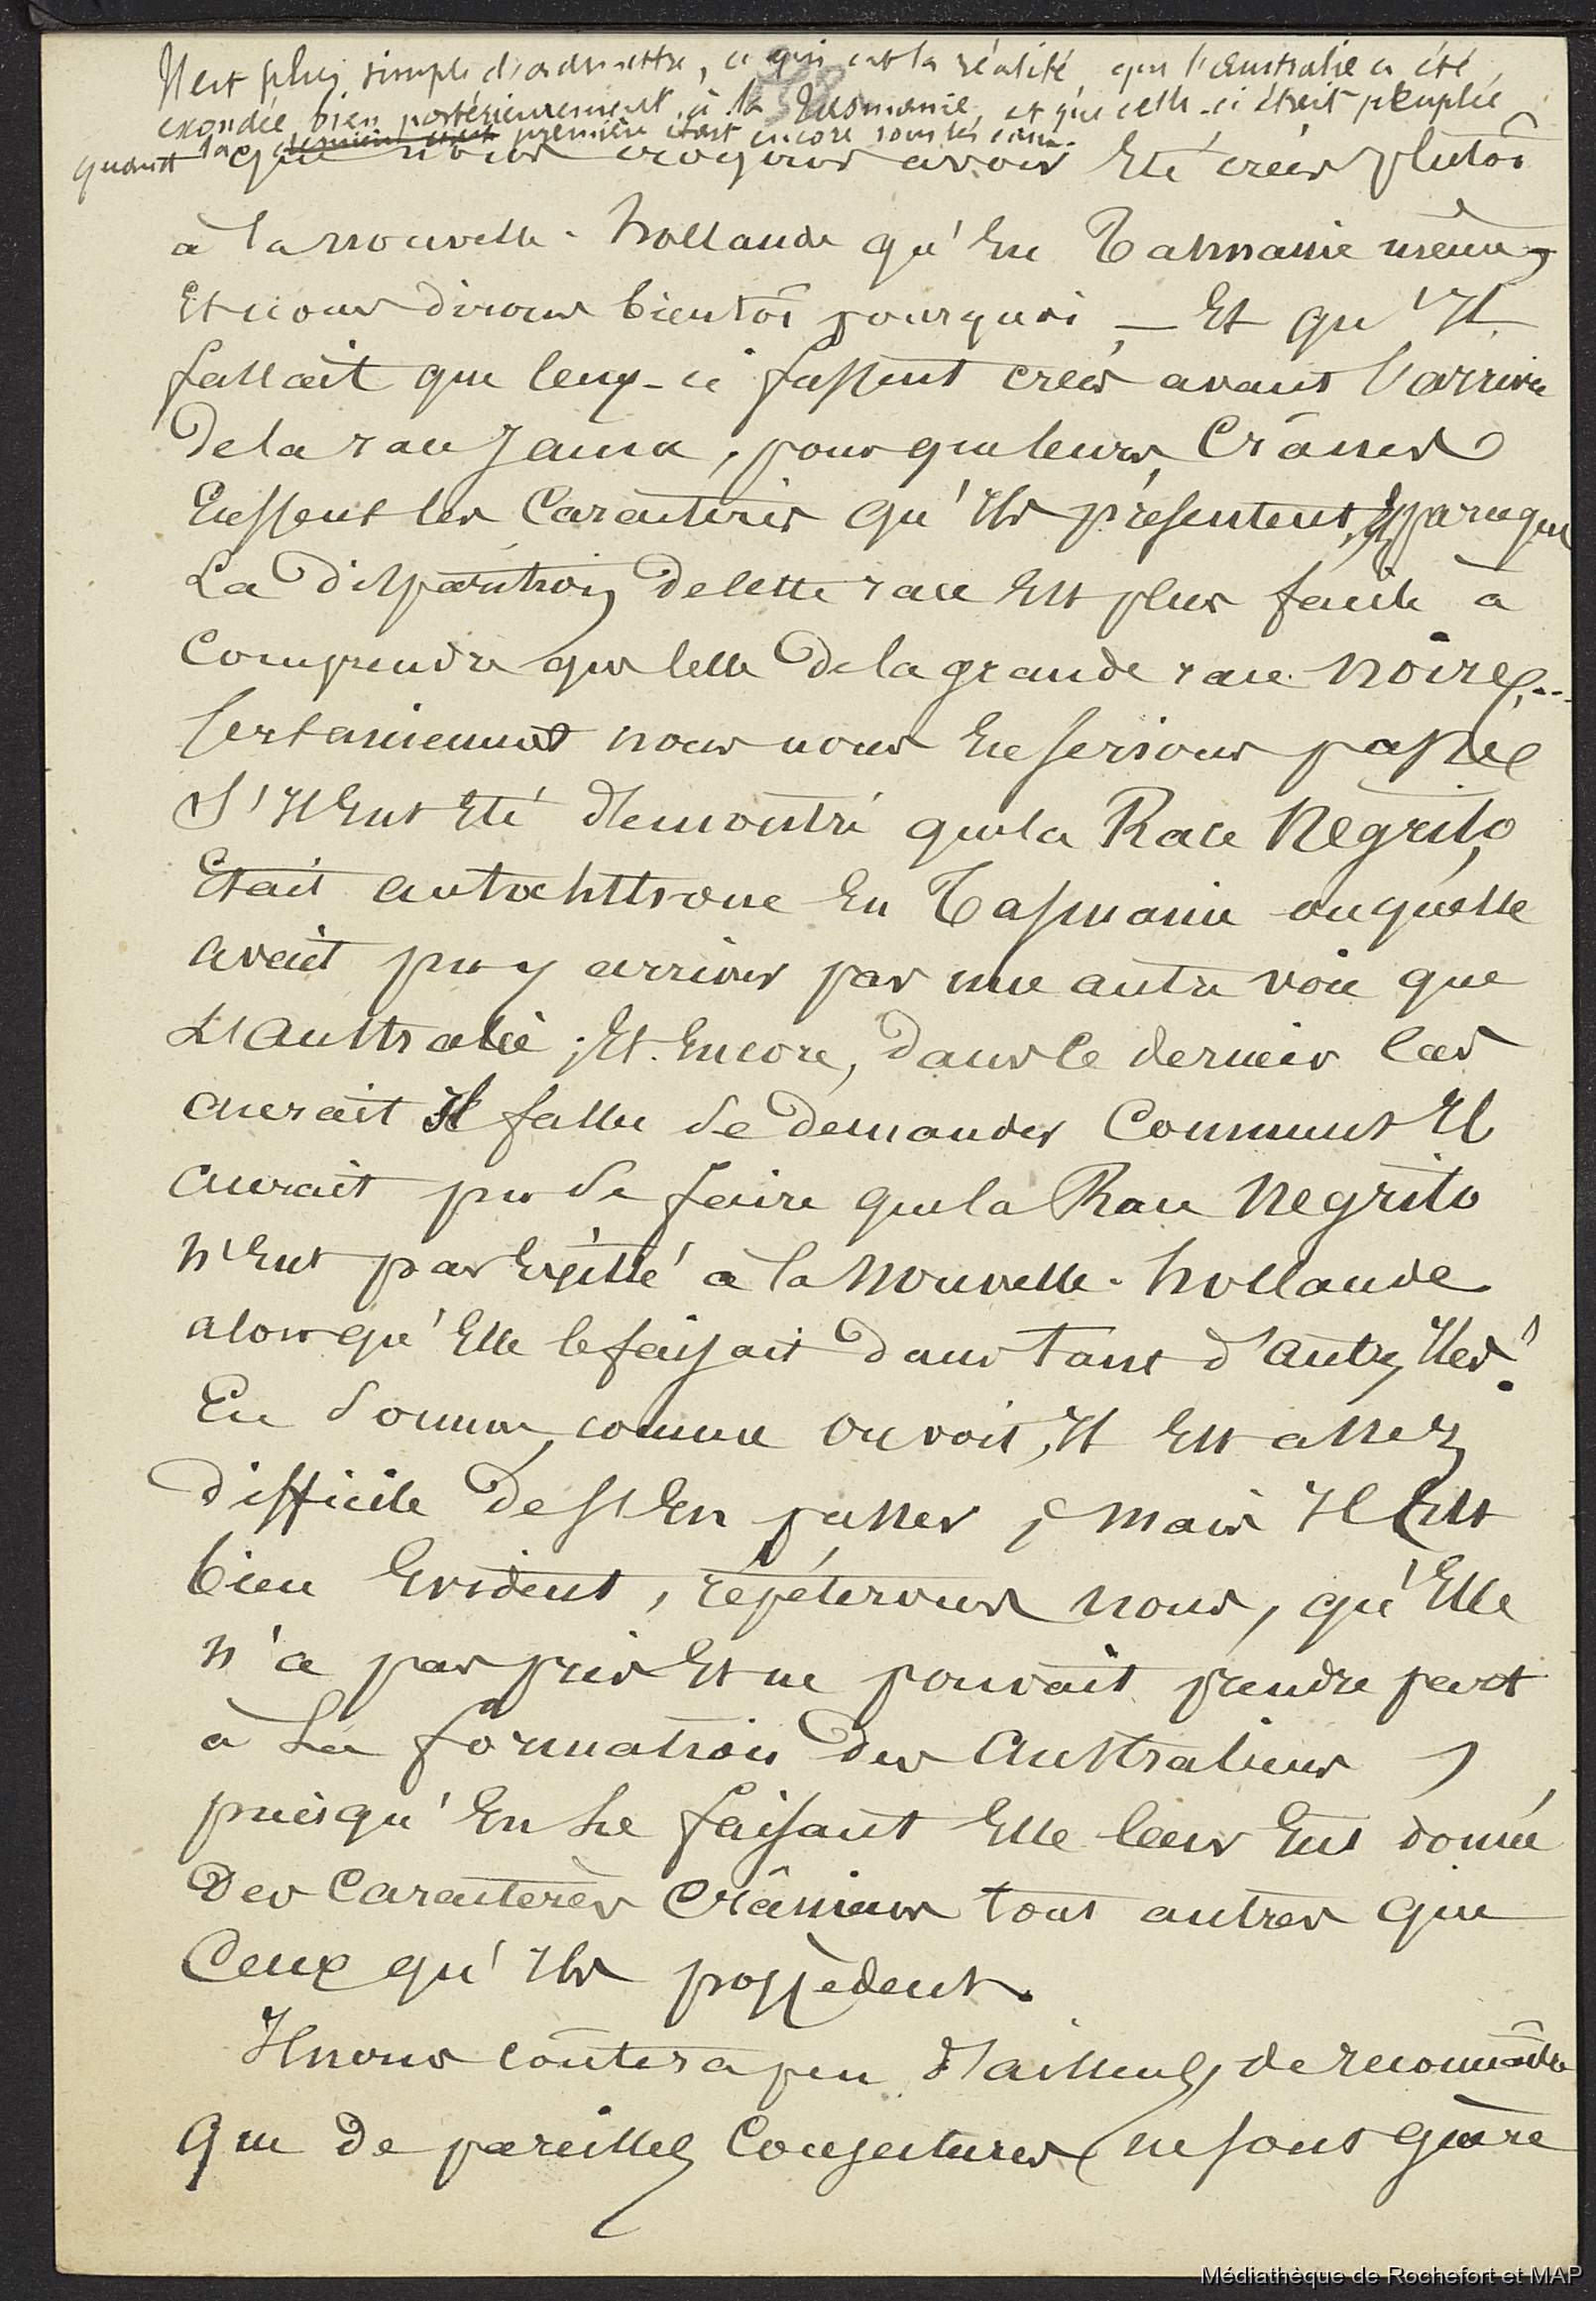 Il est plus simple d'admettre, ce qui est la réalité que l'Australie a été
exondée bien postérieurement à la Tasmanie, et que celle-ci était peuplée
quand la première était encore sous les eaux.
que nous croyons avoir Eté créés plutôt
à la nouvelle-hollande qu'En Tasmanie même,
Et nous dirons bientôt pourquoi — Et qu'Il
fallait que ceux-ci fussent créés avant l'arrivée
De la race Jaune, pour que leurs Crânes
Eussent les Caractères qu'Ils présentent, parceque
La Disparition De cette race Est plus facile à
Comprendre que celle De la grande race noire...
Certainement nous nous En serions passé
S'Il Eut Eté démontré que la Race Négrito
Etait autochttone En Tasmanie ou qu'elle
avait pu y arriver par une autre voie que
L'Australie ; Et Encore, Dans le dernier Cas
aurait Il fallu se Demander Comment Il
aurait pu se faire que la Race Négrito
n'Eut pas Existé à la Nouvelle-hollande
alors qu'Elle le faisait Dans tant d'autres Iles !
En Somme, comme on voit, Il Est assez
Difficile De s'En passer ; mais Il Est
bien Evident, répéterons nous, qu'Elle
n'a pas pris Et ne pouvait prendre part
à La formation Des Australiens,
puisqu'En Le faisant Elle leur Eut donné
Des Caractères Crâniens tout autres que
Ceux qu'Ils possèdent.
Il nous coûtera peu D'ailleurs, de reconnaître
Que De pareilles Conjectures ne sont guère
Médiathèque de Rochefort et MAP